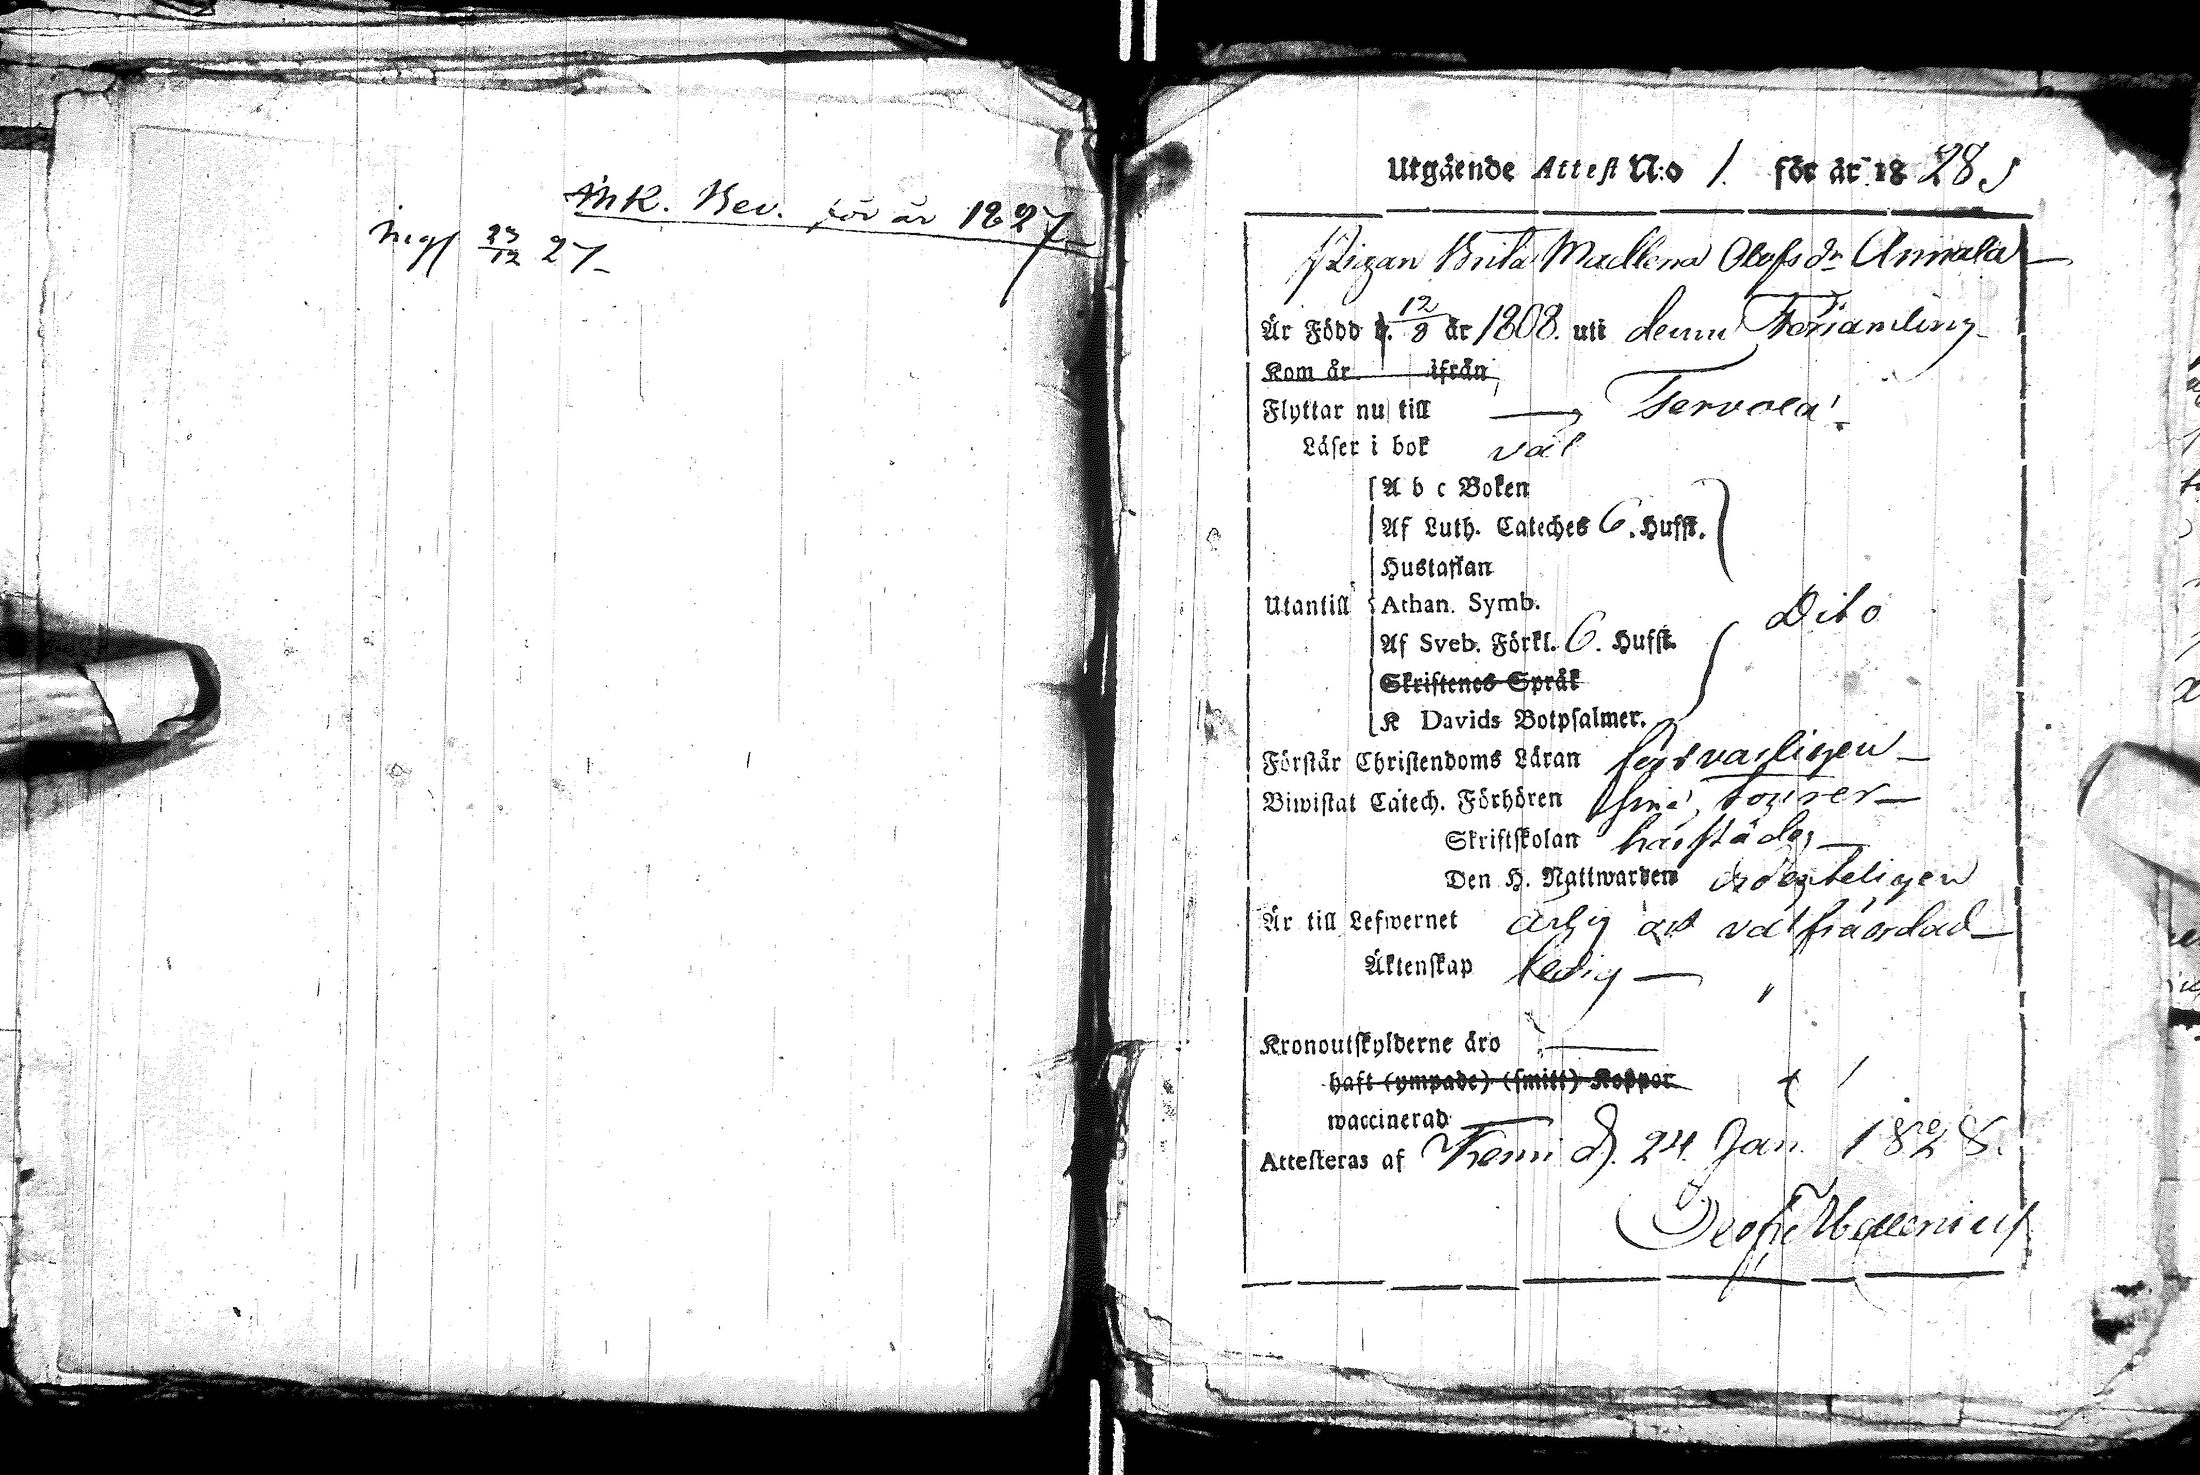 Ink. Bev. för år 1827
Ingf 23/12 27
Utgående Attest N:o 1. för år 1828
Pigan Brita Madlena Olofsdr Annala
Är Född d. 12/8 år 1808. uti denna Församling
Kom år ifrån
Flyttar nu till Tervola
Läser i bok väl
A b c Boken
Af Luth. Cateches 6. Hufst.
Hustaflan
Utantill Athan. Symb. Dito
Af Sveb. Förkl. 6. Hufst.
Skriftenes Språk
K Davids Botpsalmer.
Förstår Christendoms Läran försvarligen
Biwistat Catech. Förhören sine tourer
Skriftskolan härstädes
Den H. Nattwarden ordenteligen
Är till Lefwernet ärlig och välfräjdad
Äktenskap ledig
Kronoutskylderne äro
haft (ympade) (smitt) Koppor
waccinerad
Attesteras af Kemi d. 24 Jan. 1828.